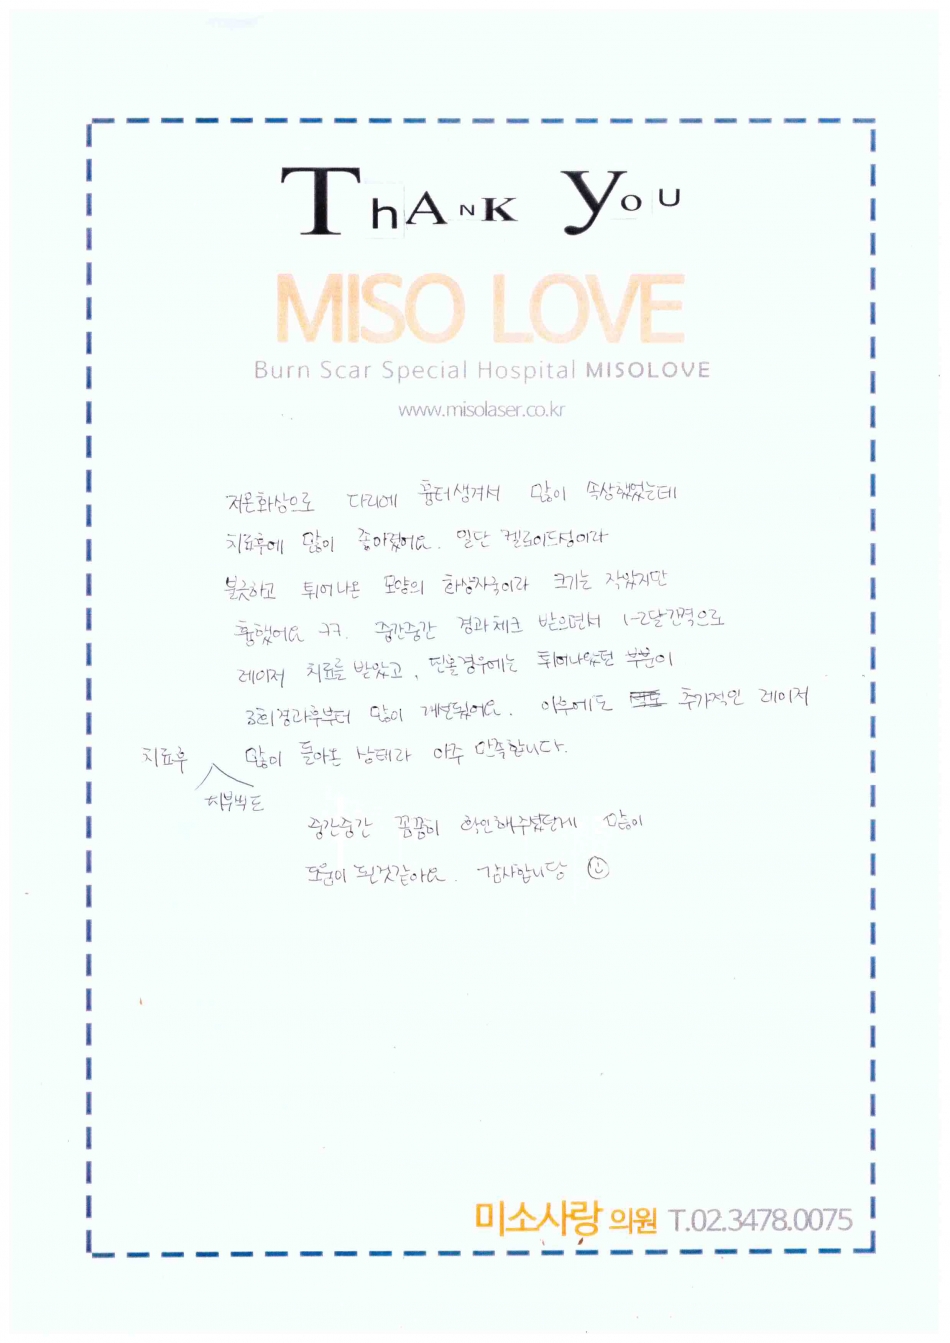 ThANK YoU
MISO LOVE
Burn Scar Special Hospital MISOLOVE
www.misolaser.co.kr
저온화상으로 다리에 흉터생겨서 많이 속상했었는데
치료후에 많이 좋아졌어요. 일단 켈로이드성이라
불긋하고 튀어나온 모양의 화상자국이라 크기는 작았지만
흉했어요 ㅋㅋ. 중간중간 경과체크 받으면서 1-2달간격으로
레이저 치료를 받았고, 핀홀경우에는 튀어나왔던 부분이
3회경과후부터 많이 개선됐어요. 이후에도 추가적인 레이저
치료후 많이 돌아온 상태라 아주 만족합니다.
피부색도
중간중간 꼼꼼히 확인해주셨던게 많이
도움이 된것같아요. 감사합니당
미소사랑 의원 T.02.3478.0075